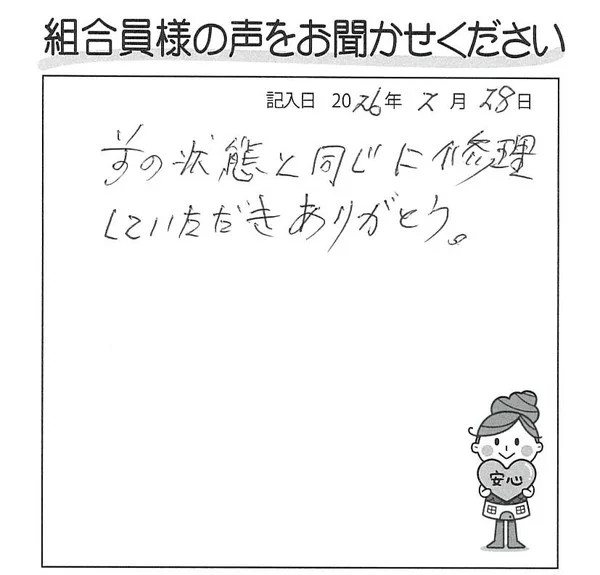 組合員様の声をお聞かせください
記入日 2026年 2月 28日
前の状態と同じに修理
していただきありがとう。
安心